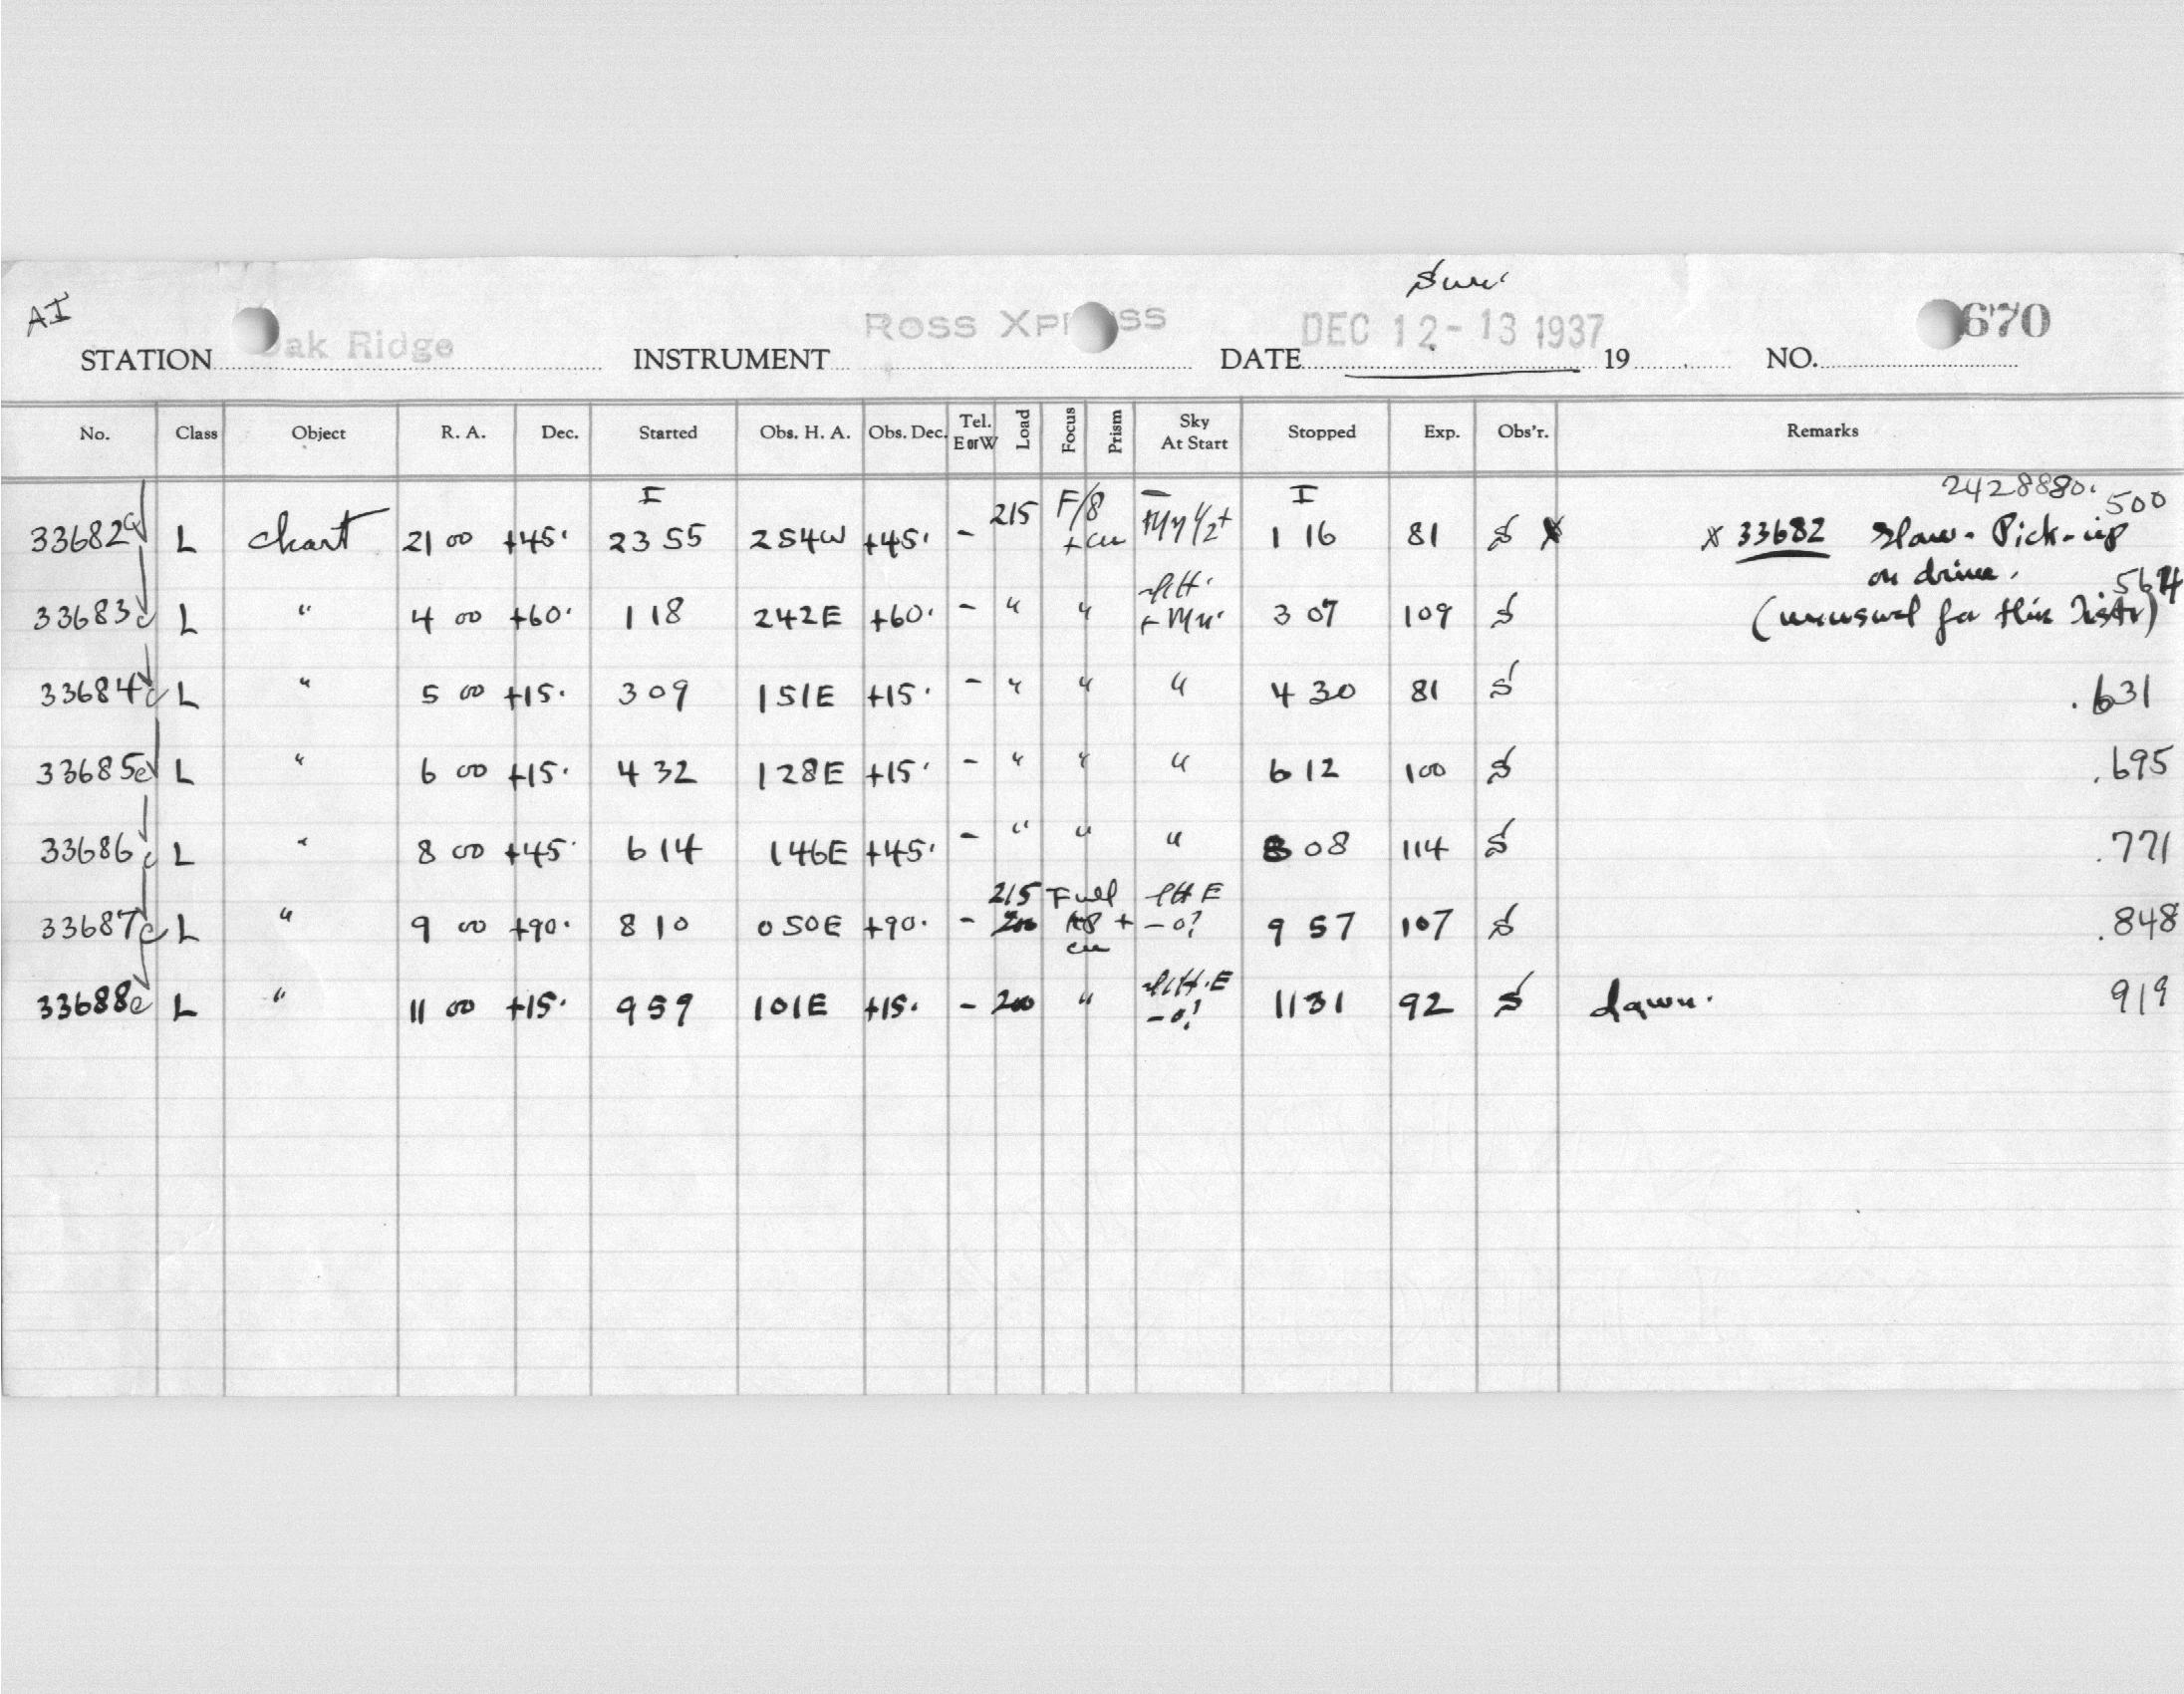 AI
Sun.
STATION Oak Ridge INSTRUMENT ROSS XPRESS DATE DEC 12-13 1937 19 NO. 670
No. Class Object R. A. Dec. Started Obs. H. A. Obs. Dec. Tel. E or W Load Focus Prism Sky At Start Stopped Exp. Obs'r. Remarks
2428880.
33682 L chart 21 00 +45. I 23 55 254W +45. - 215 F/8 + cu I 1 16 81 S x x 33682 Slow. Pick-up 500
on drive.
33683 L " 4 00 +60. 1 18 242E +60. - " " 3 07 109 S (unusual for this Instr) 564
33684 L " 5 00 +15. 3 09 151E +15. - " " " 4 30 81 S .631
33685 L " 6 00 +15. 4 32 128E +15. - " " " 6 12 100 S .695
33686 L " 8 00 +45. 6 14 146E +45. - " " " 8 08 114 S .771
33687 L " 9 00 +90. 8 10 050E +90. - 215 Full - 0? 9 57 107 S .848
33688 L " 11 00 +15. 9 59 101E +15. - 200 " - 0? 11 31 92 S dawn. 919